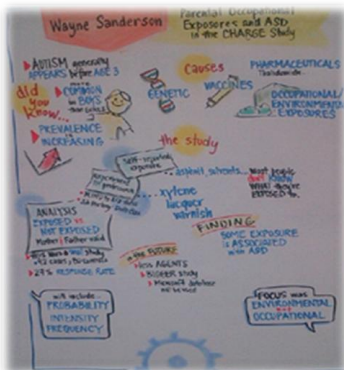 Wayne Sanderson
Parental Occupational
Exposures and ASD
in the CHARGE Study
AUTISM generally
APPEARS before AGE 3
did
you
know...
more
COMMON
in BOYS
than GIRLS
PREVALENCE
is
INCREASING
Causes
GENETIC
VACCINES
PHARMACEUTICALS
Thalidomide
OCCUPATIONAL/
ENVIRONMENTAL
EXPOSURES
the study
Self-reported
exposure
asphalt, solvents...
most people
don't KNOW
WHAT they're
EXPOSED to.
xylene
lacquer
varnish
ANALYSIS
EXPOSED vs
NOT EXPOSED
Mother | Father
this was a small study
RESPONSE RATE
FINDING
SOME EXPOSURE
IS ASSOCIATED
with ASD
in the FUTURE
less AGENTS
BIGGER study
will include...
PROBABILITY
INTENSITY
FREQUENCY
FOCUS was
ENVIRONMENTAL
OCCUPATIONAL